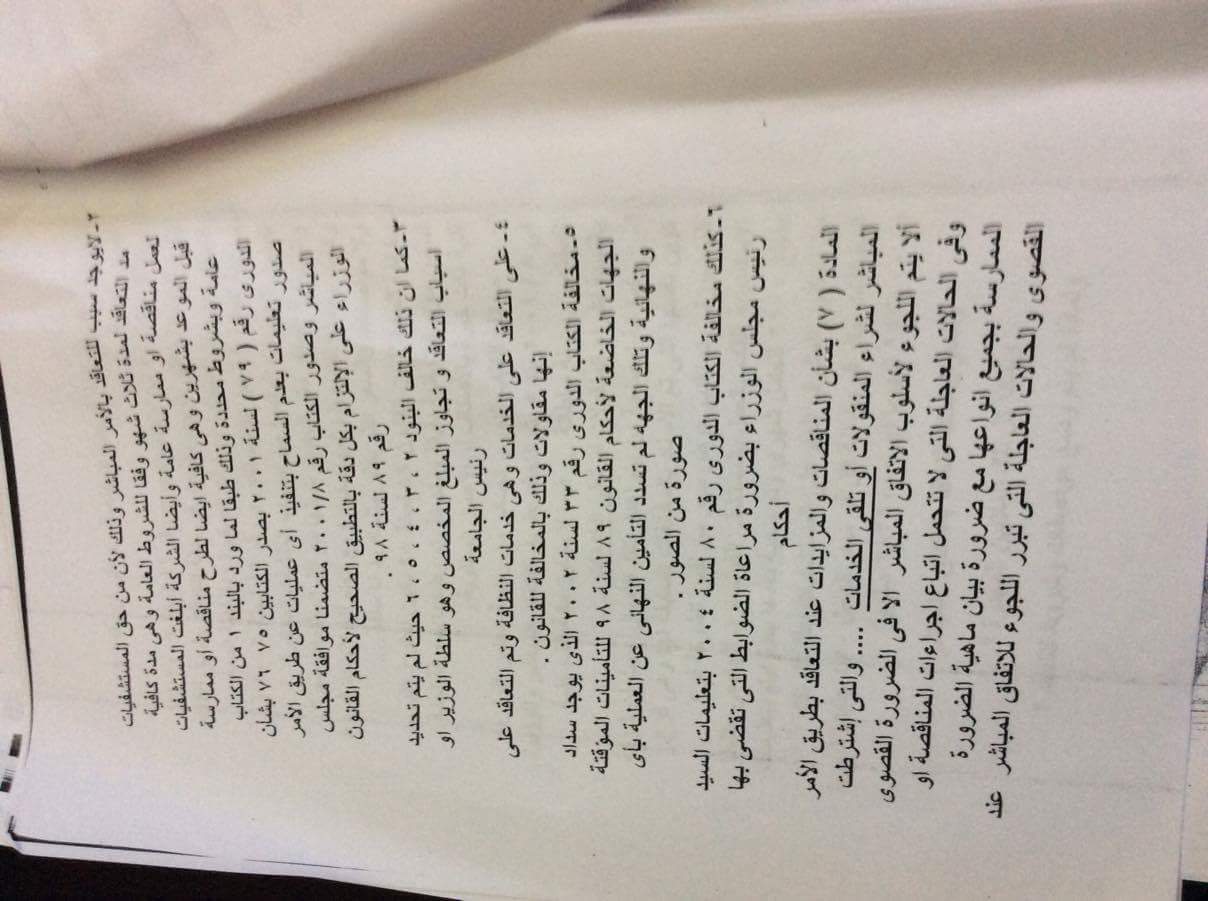 ٢- لايوجد سبب للتعاقد بالأمر المباشر وذلك لأن من حق المستشفيات
مد التعاقد لمدة ثلاث شهو وفقا للشروط العامة وهى مدة كافية
لعمل مناقصة او ممارسة عامة وأيضا الشركة أبلغت المستشفيات
قبل الموعد بشهرين وهى كافية ايضا لطرح مناقصة أو ممارسة
عامة وبشروط محددة وذلك طبقا لما ورد بالبند ١ من الكتاب
الدورى رقم ( ٧٩ ) لسنة ٢٠٠١ بصدر الكتابين ٧٥ ٧٦ بشأن
صدور تعليمات بعدم السماح بتنفيذ أى عمليات عن طريق الأمر
المباشر وصدور الكتاب رقم ٢٠٠١/٨ متضمنا موافقة مجلس
الوزراء على الإلتزام بكل دقة بالتطبيق الصحيح لأحكام القانون
رقم ٨٩ لسنة ٩٨ .
٣- كما ان ذلك خالف البنود ٢ ، ٣ ، ٤ ، ٥ ، ٦ حيث لم يتم تحديد
اسباب التعاقد و تجاوز المبلغ المخصص وهو سلطة الوزير او
رئيس الجامعة
٤- على التعاقد على الخدمات وهى خدمات النظافة وتم التعاقد على
إنها مقاولات وذلك بالمخالفة للقانون .
٥- مخالفة الكتاب الدورى رقم ٢٣ لسنة ٢٠٠٢ الذى يوجد سداد
الجهات الخاضعة لأحكام القانون ٨٩ لسنة ٩٨ للتأمينات المؤقتة
والنهائية وتلك الجهه لم تسدد التأمين النهائى عن العملية باى
صورة من الصور .
٦- كذلك مخالفة الكتاب الدورى رقم ٨٠ لسنة ٢٠٠٤ بتعليمات السيد
رئيس مجلس الوزراء بضرورة مراعاة الضوابط التى تقضى بها
أحكام
المادة ( ٧ ) بشأن المناقصات والمزايدات عند التعاقد بطريق الأمر
المباشر لشراء المنقولات أو تلقى الخدمات .... والتى إشترطت
ألا يتم اللجوء لأسلوب الاتفاق المباشر الا فى الضرورة القصوى
وفى الحالات العاجلة التى لا تتحمل اتباع اجراءات المناقصة او
الممارسة بجميع انواعها مع ضرورة بيان ماهية الضرورة
القصوى والحالات العاجلة التى تبرر اللجوء للاتفاق المباشر عند